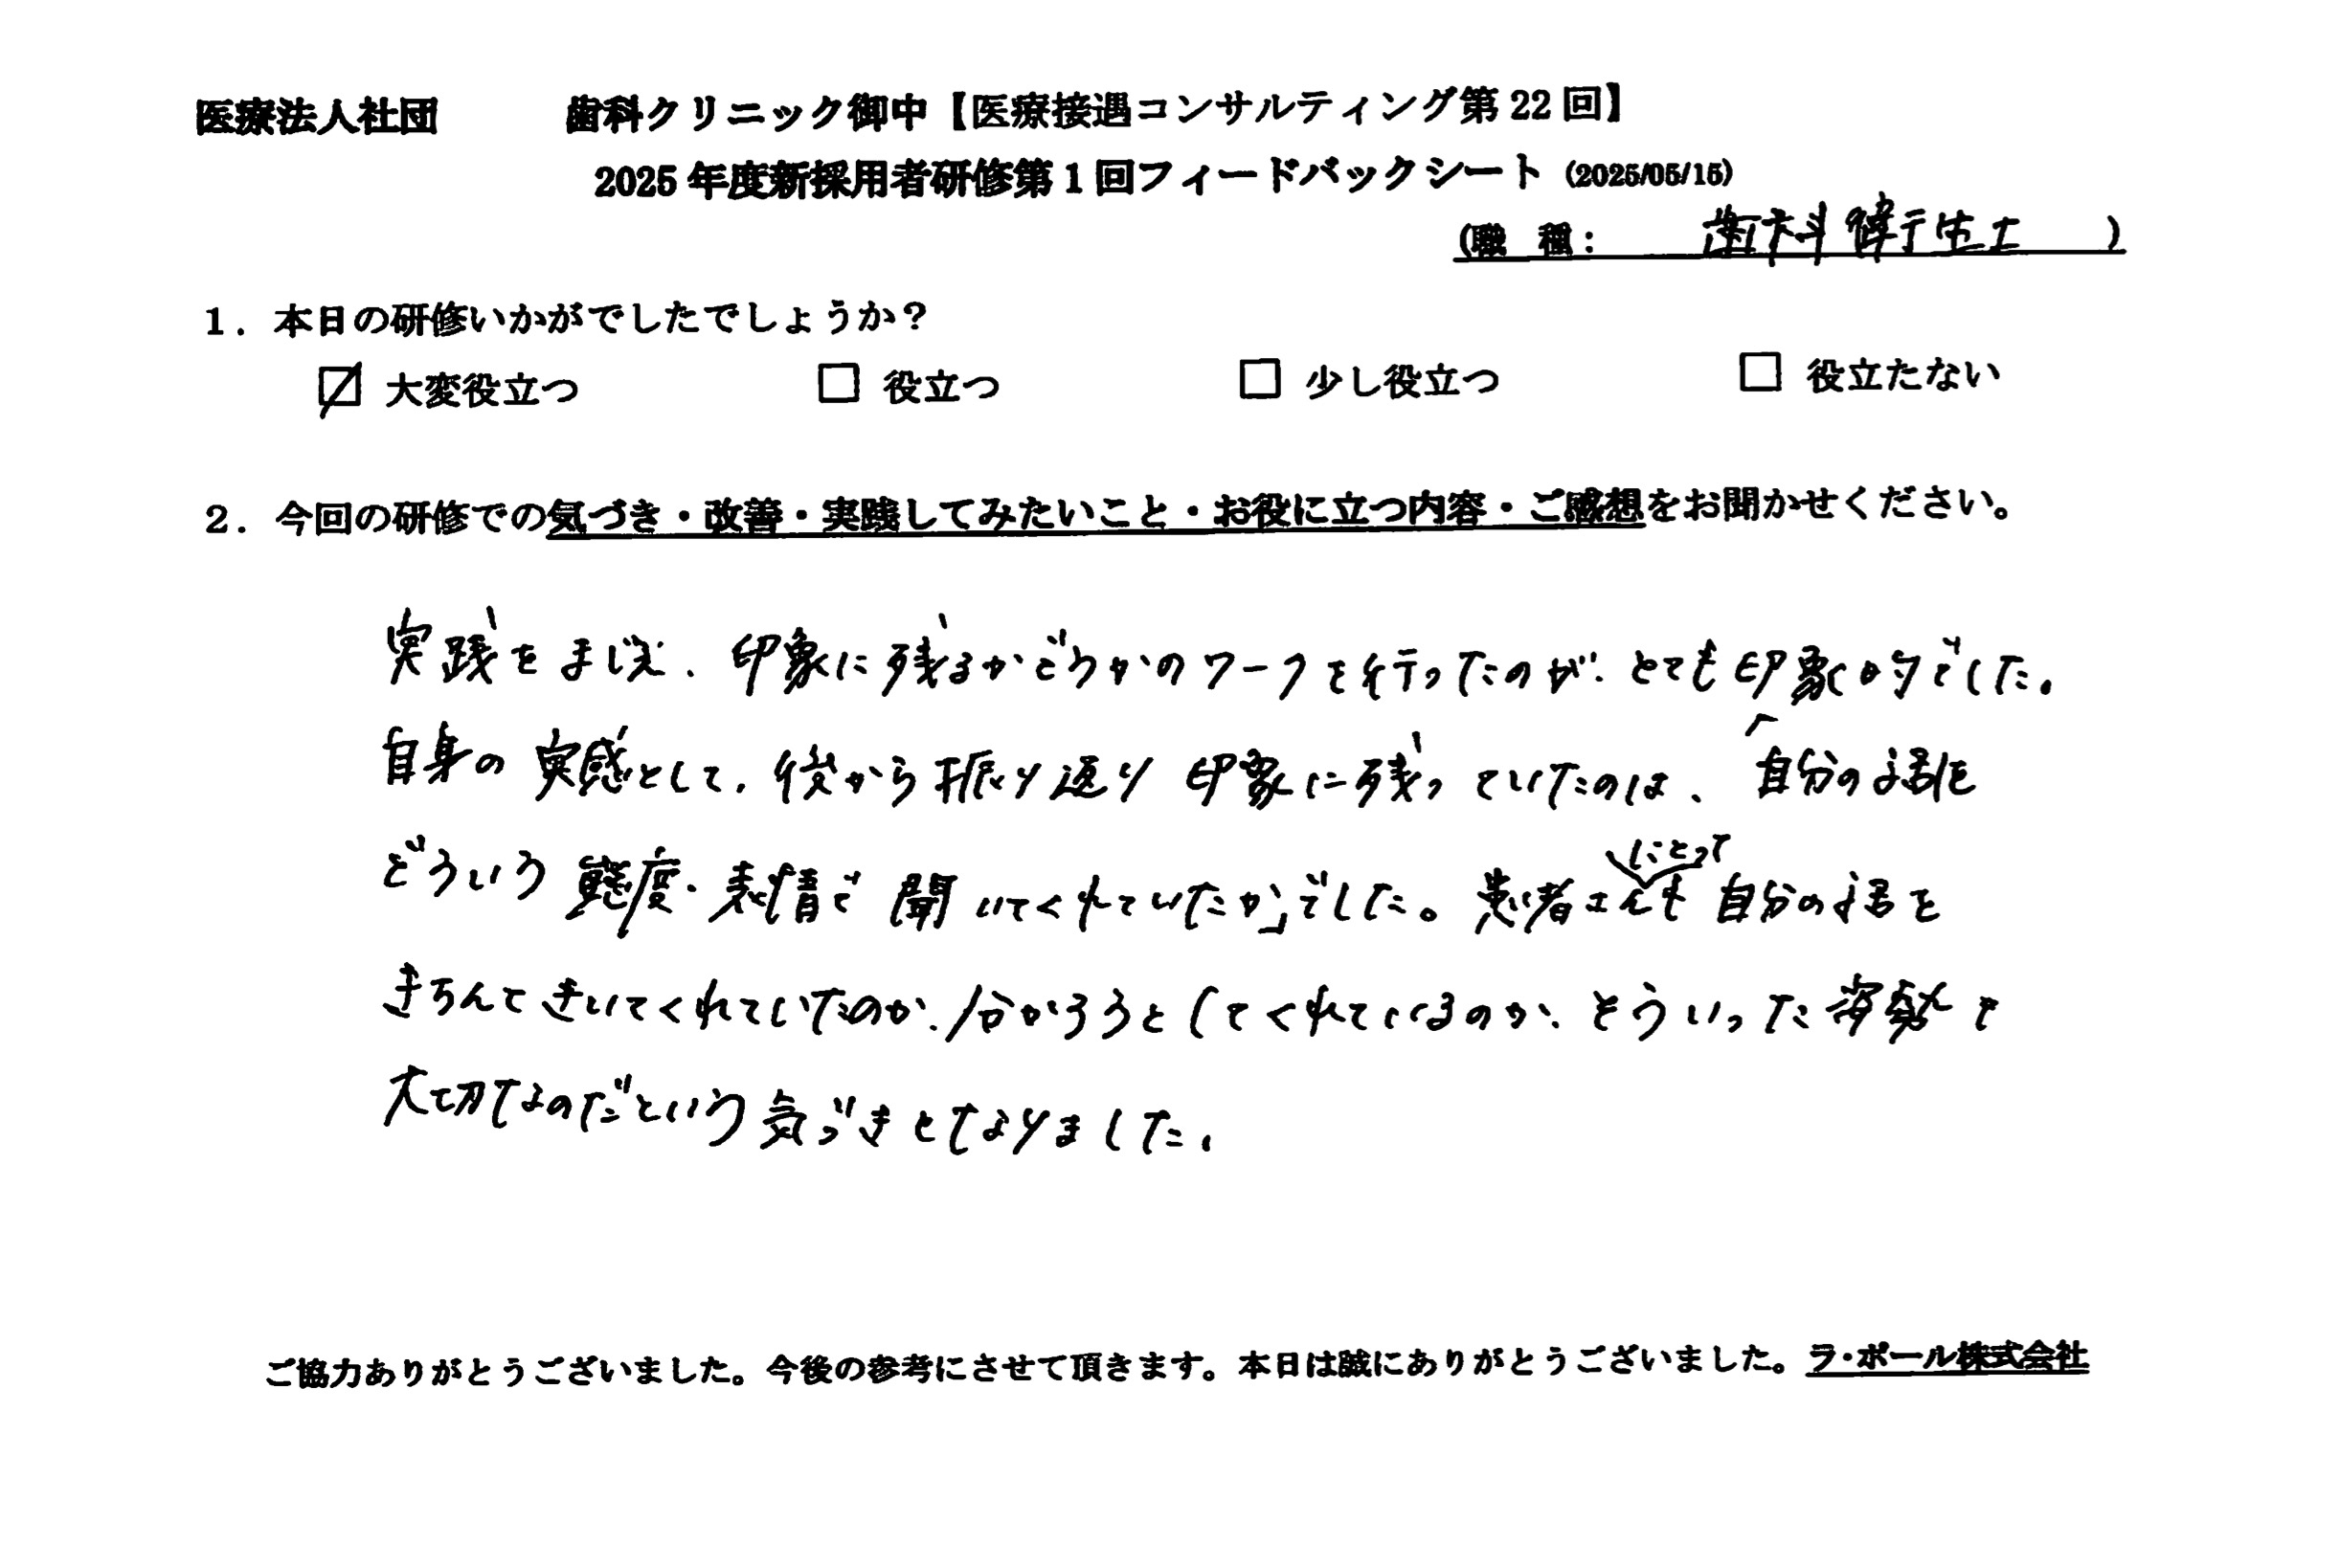 医療法人社団　　　歯科クリニック御中【医療接遇コンサルティング第22回】
2025年度新採用者研修第1回フィードバックシート（2025/05/15）
(職　種：　　歯科衛生士　　)
1．本日の研修いかがでしたでしょうか？
☑ 大変役立つ　　□ 役立つ　　□ 少し役立つ　　□ 役立たない
2．今回の研修での気づき・改善・実践してみたいこと・お役に立つ内容・ご感想をお聞かせください。
実践をまじえ、印象に残るかどうかのワークを行ったのが、とても印象的でした。
自身の実感として、後から振り返り印象に残っていたのは、「自分の話を
どういう態度・表情で聞いてくれていたか」でした。患者さんにとっても自分の話を
きちんてきいてくれていたのか、分かろうとしてくれているのか、そういった姿勢を
大切なのだという気づきとなりました。
ご協力ありがとうございました。今後の参考にさせて頂きます。本日は誠にありがとうございました。ラ・ポール株式会社